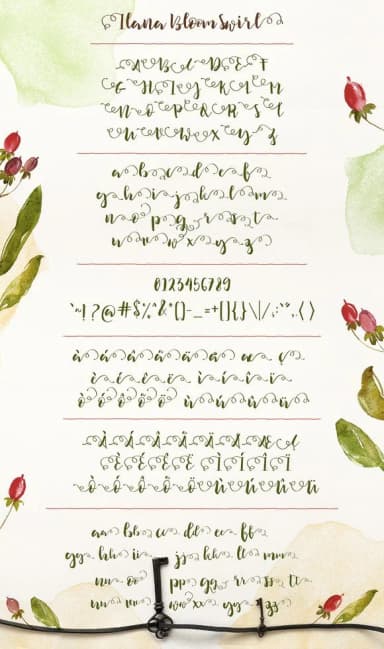 Ilana Bloom Swirl
A B C D E F
G H I J K L M
N O P Q R S T
U V W X Y Z
a b c d e f
g h i j k l m
n o p q r s t
u v w x y z
0123456789
`~!?@#$%^&*()-_=+[]{}\|/,:;"",.<>
à á â ã ä å æ ç
è é ê ë ì í î ï
ò ó ô õ ö ù ú û ü
À Á Â Ã Ä Å Æ Ç
È É Ê Ë Ì Í Î Ï
Ò Ó Ô Õ Ö Ù Ú Û Ü
aa bb cc dd ee ff
gg hh ii jj kk ll mm
nn oo pp qq rr ss tt
uu vv ww xx yy zz